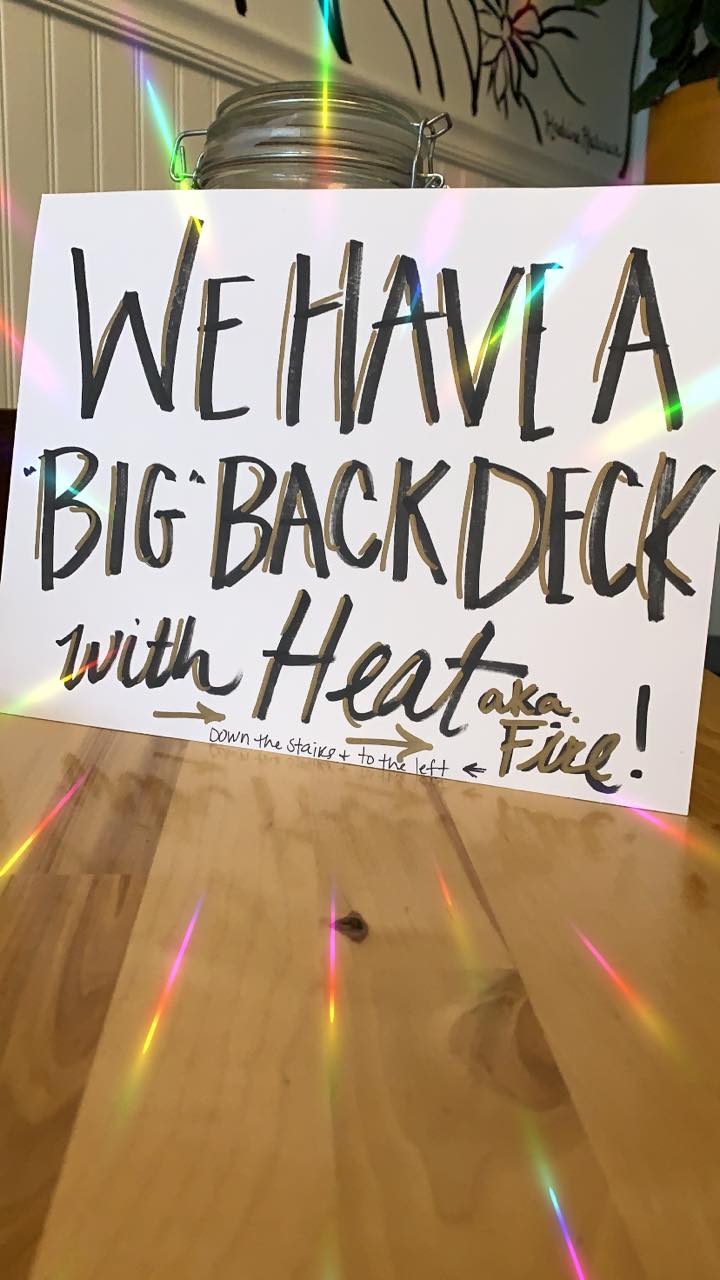 WE HAVE A
"BIG" BACK DECK
with Heat aka Fire!
Down the stairs + to the left